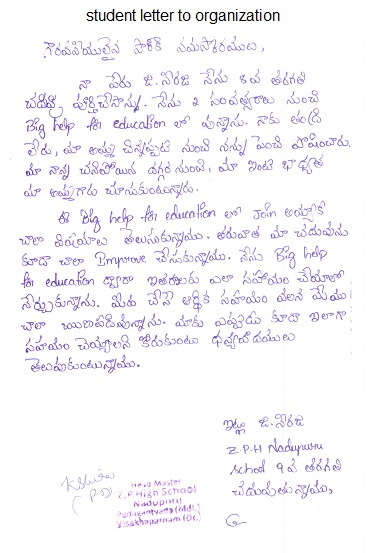 student letter to organization
గౌరవనీయులైన సార్ కి నమస్కారములు,
నా పేరు జి.నీరజ నేను 8వ తరగతి
చదివి పూర్తిచేసాను. నేను 2 సంవత్సరాలు నుంచి
Big help for education లో వున్నాను. నాకు తండ్రి
లేరు, మా అమ్మ చిన్నప్పటి నుంచి నన్ను పెంచి పోషించారు.
మా నాన్న చనిపోయిన దగ్గర నుంచి, మా ఇంటి భాధ్యత
మా అమ్మగారు చూసుకుంటున్నారు.
ఈ Big help for education లో Join అయ్యాకే
చాలా విషయాలు తెలుసుకున్నాము. తరువాత మా చదువును
కూడా చాలా Improve చేసుకున్నాము. నేను Big help
for education ద్వారా ఇతరులకు ఎలా సహాయం చేయాలో
నేర్చుకున్నాను. మీరు చేసే ఆర్ధిక సహాయం వలన మేము
చాలా ఆనందపడివున్నాను. మాకు ఎప్పుడు కూడా ఇలాగా
సహాయం చెయ్యాలని కోరుకుంటు ధన్యవాదములు
తెలుపుకుంటున్నాము.
ఇట్లు జి.నీరజ
Z.P.H Nadupuru
School 9వ తరగతి
చదువుతున్నాము,
Head Master
Z.P.High School
Nadupuru
Pedagantyada (Mdl.)
Visakhapatnam (Dt.)